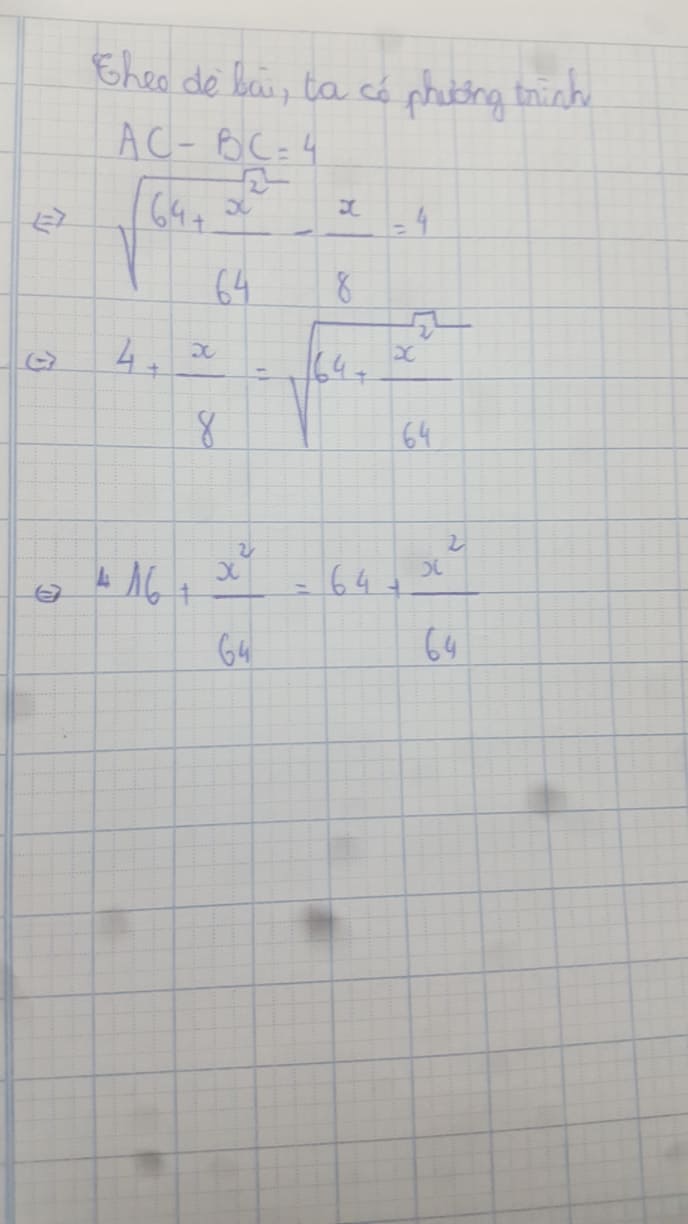 Theo đề bài, ta có phương trình
AC - BC = 4
⇔ √(64 + x²/64) - x/8 = 4
⇔ 4 + x/8 = √(64 + x²/64)
⇔ 16 + x²/64 = 64 + x²/64